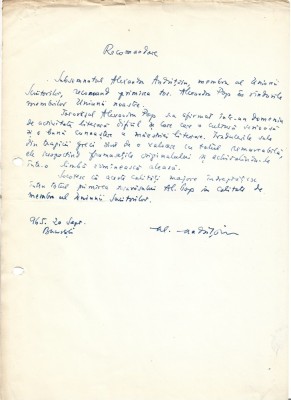 Recomandare
Subsemnatul Alexandru Andrițoiu, membru al Uniunii
Scriitorilor, recomand primirea tov. Alexandru Pop în rândurile
membrilor Uniunii noastre.
Tovarășul Alexandru Pop s-a afirmat într-un domeniu
de activitate literară dificil și care cere o cultură serioasă
și o bună cunoaștere a măiestriei literare. Traducerile sale
din tragicii greci sunt de o valoare cu totul remarcabilă,
ele respectând frumusețile originalului și echivalându-le
într-o limbă românească aleasă.
Socotesc că aceste calități majore îndreptățesc
întru totul primirea scriitorului Al. Pop în calitate de
membru al Uniunii Scriitorilor.
965. 20 Sept.
București
Al. Andrițoiu